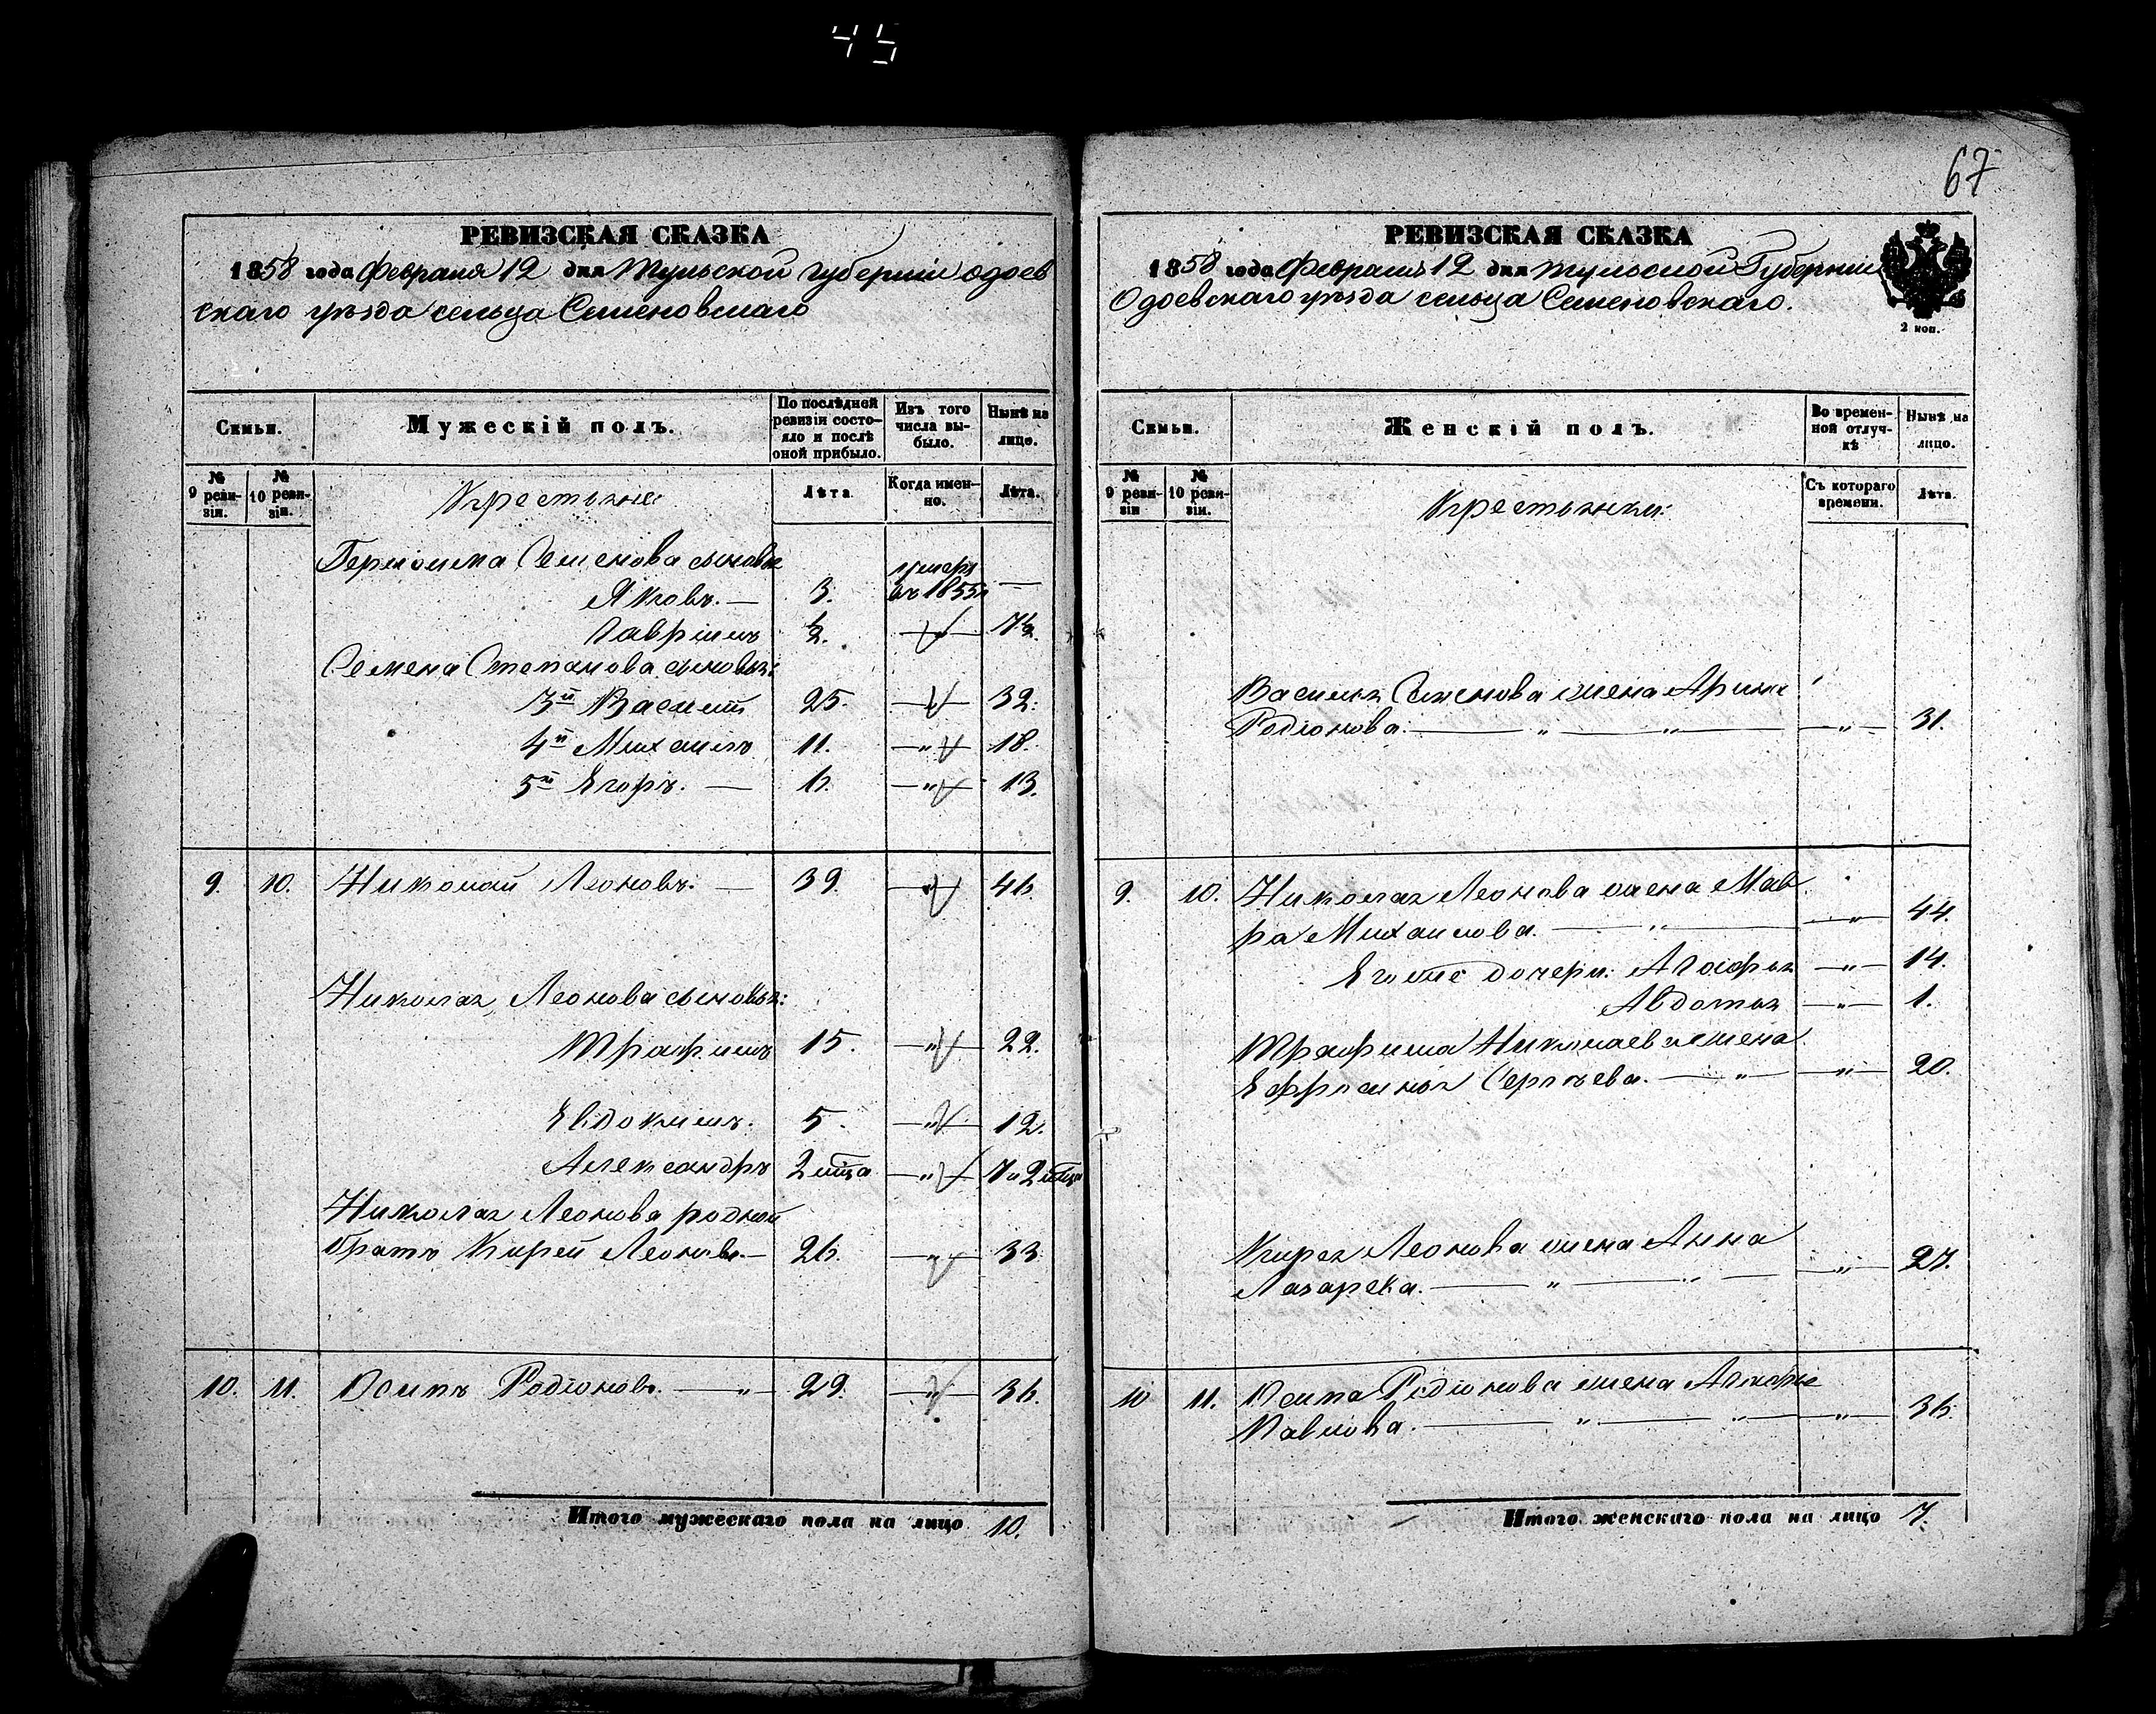 45
67
РЕВИЗСКАЯ СКАЗКА
1858 года Февраля 12 дня Тульской губерніи одоев
скаго уѣзда сельца Семеновскаго
Семьи.
Мужескій полъ.
По послѣдней ревизіи состояло и послѣ оной прибыло.
Изъ того числа выбыло.
Нынѣ на лице.
№ 9 ревизіи.
№ 10 ревизіи.
Крестьяне
Лѣта
Когда именно.
Лѣта.
Семенова сыновья
Яковъ. — 3. умеръ въ 1855 —
Гаврилъ ½. " 7½.
Семена Степанова сыновья:
3й Василій 25. — " — 32.
4й Михаилъ 11. — " — 18.
5й Егоръ. — 6. — " — 13.
9. 10. Николай Леоновъ. — 39. — " — 46.
Николая Леонова сыновья:
Трафимъ 15. — " — 22.
Евдокимъ. 5. — " — 12.
Александръ 2 мѣца — " — 7 и 2 мѣца
Николая Леонова родной
братъ Кирей Леоновъ — 26. — " — 33.
10. 11. Осипъ Родіоновъ. — " — 29. — " — 36.
Итого мужескаго пола на лицо 10.
РЕВИЗСКАЯ СКАЗКА
1858 года Февраля 12 дня Тульской Губерніи
Одоевскаго уѣзда сельца Семеновскаго.
2 коп.
Семьи.
Женскій полъ.
Во временной отлучкѣ
Нынѣ на лицо.
№ 9 ревизіи
№ 10 ревизіи.
Крестьянки:
Съ котораго времени.
Лѣта.
Василья Семенова жена Арина
Родіонова. — " — " — — " — 31.
9. 10. Николая Леонова жена Мав
ра Михаилова. — " — — " — 44.
Его же дочери: Агафья — " — 14.
Авдотья — " — 1.
Трафима Николаева жена
Ефросинья Сергѣева. — " — — " — 20.
Кирея Леонова жена Анна
Лазарева. — " — " — — " — 27.
10 11. Осипа Родіонова жена Агафья
Павлова. — " — " — " — 36.
Итого женскаго пола на лицо 7.